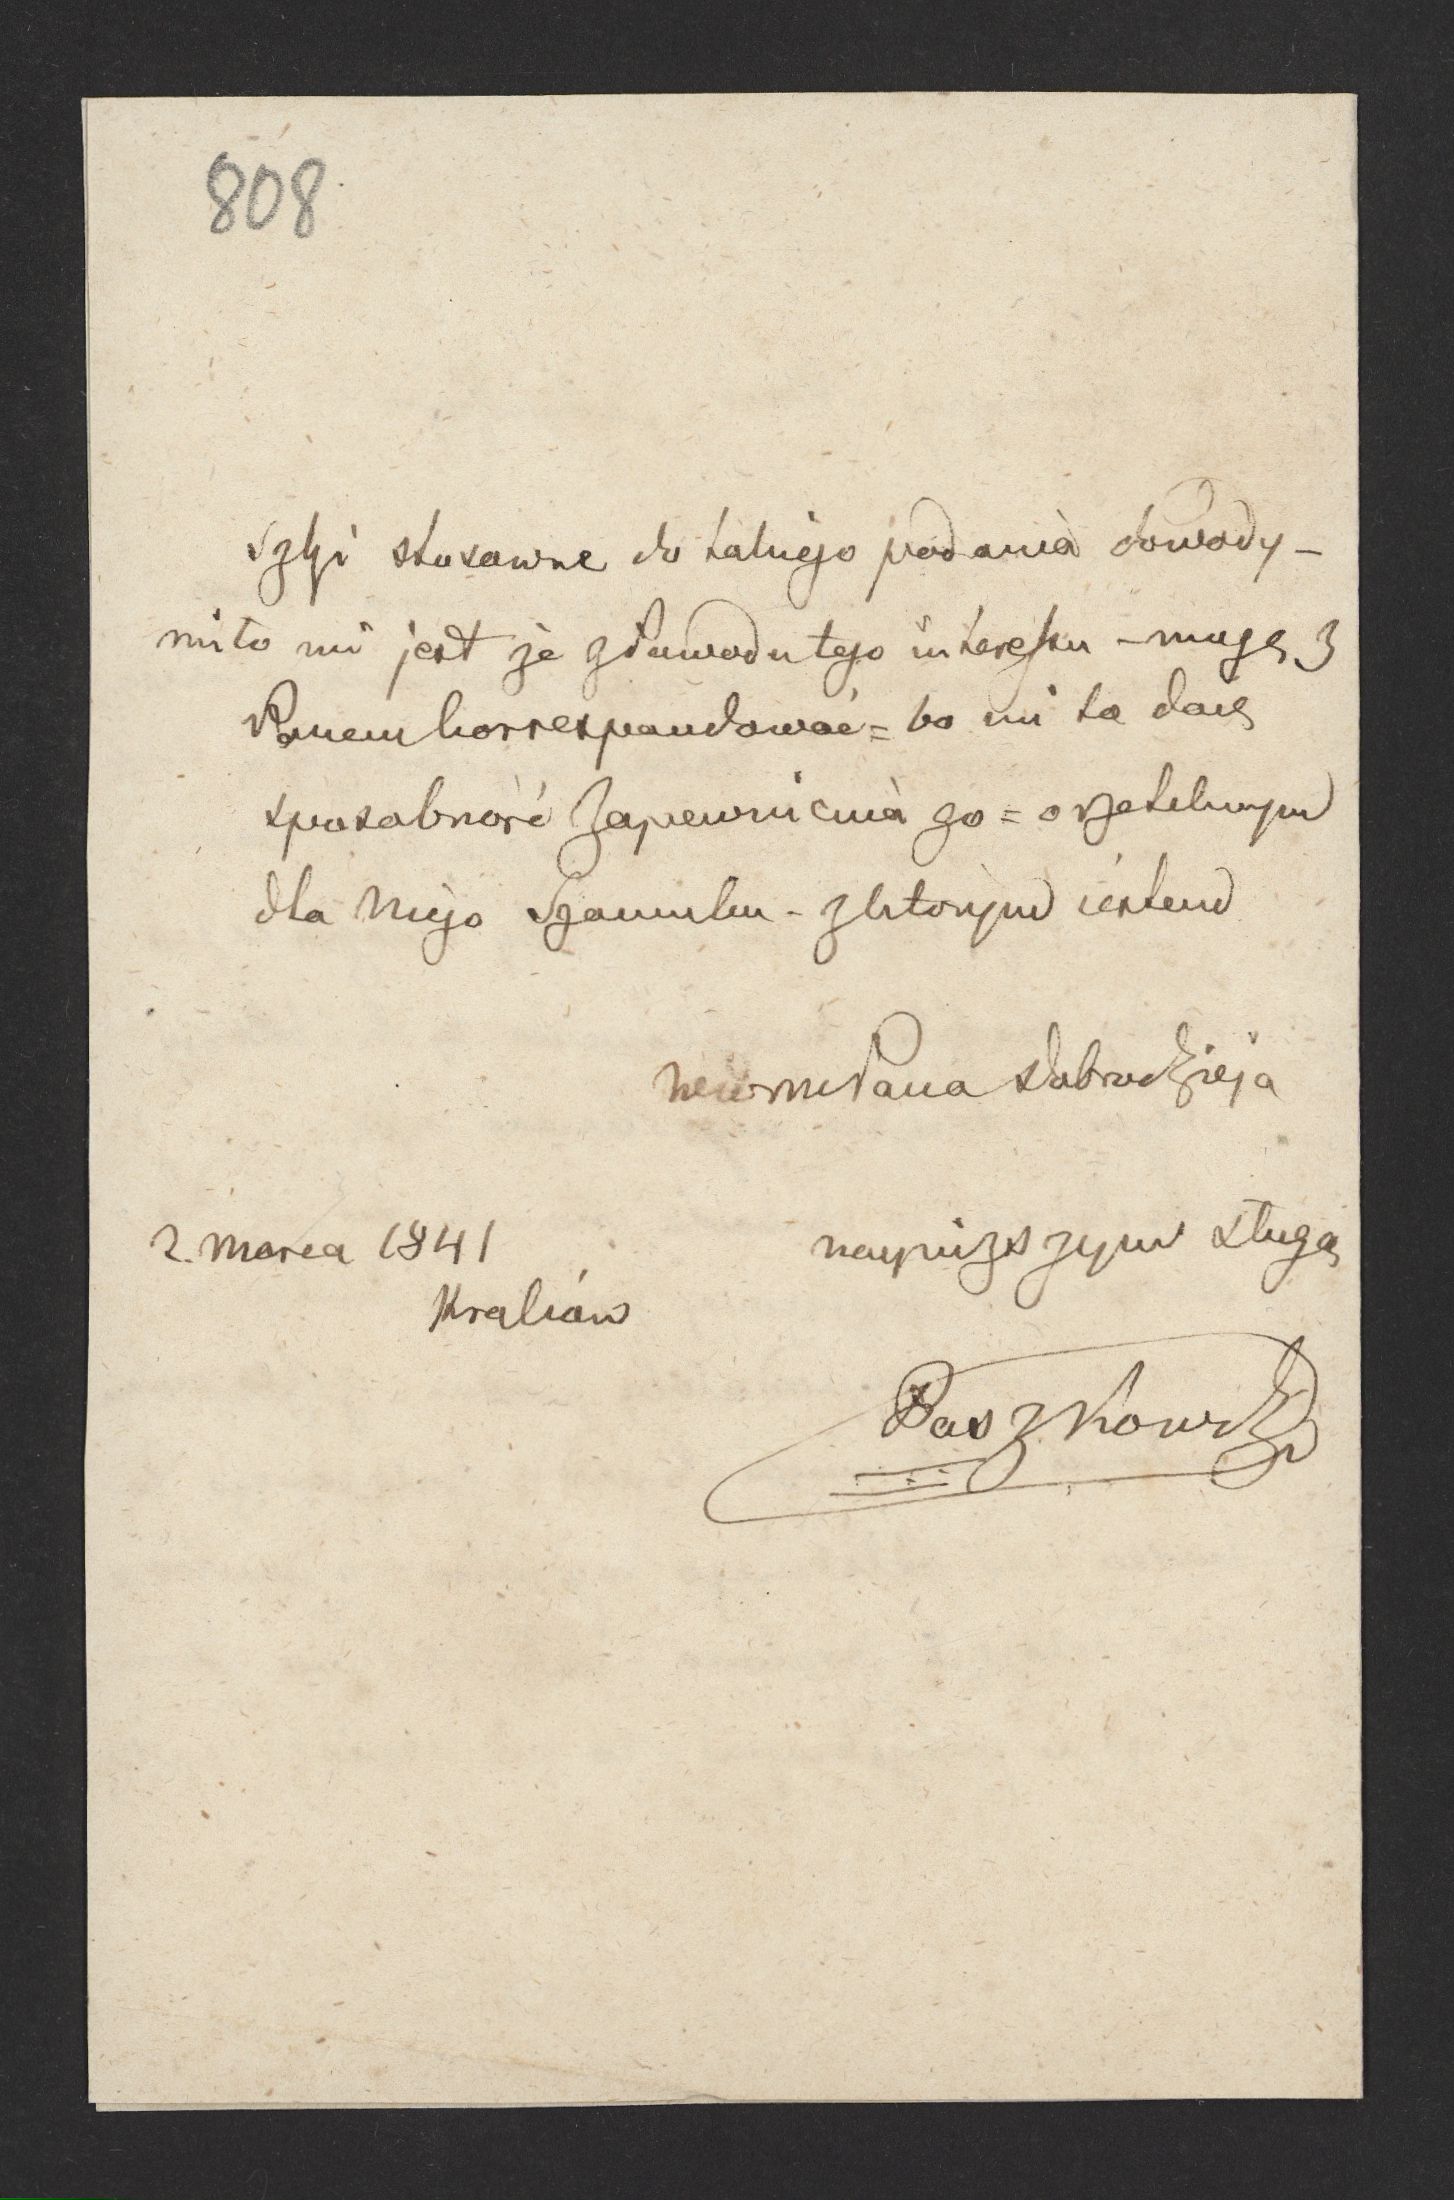 808
szłyi stosowne do takiego podania dowody –
miło mi jest że z dowodu tego interessu – mogę z
Panem korrespondować = bo mi to daie
sposobność zapewnienia go = o rzetelnym
dla Niego Szacunku – z którym iestem
Pana dobrodzieja
2. Marca 1841
nayniższym sługą
Kraków
Paszkowski